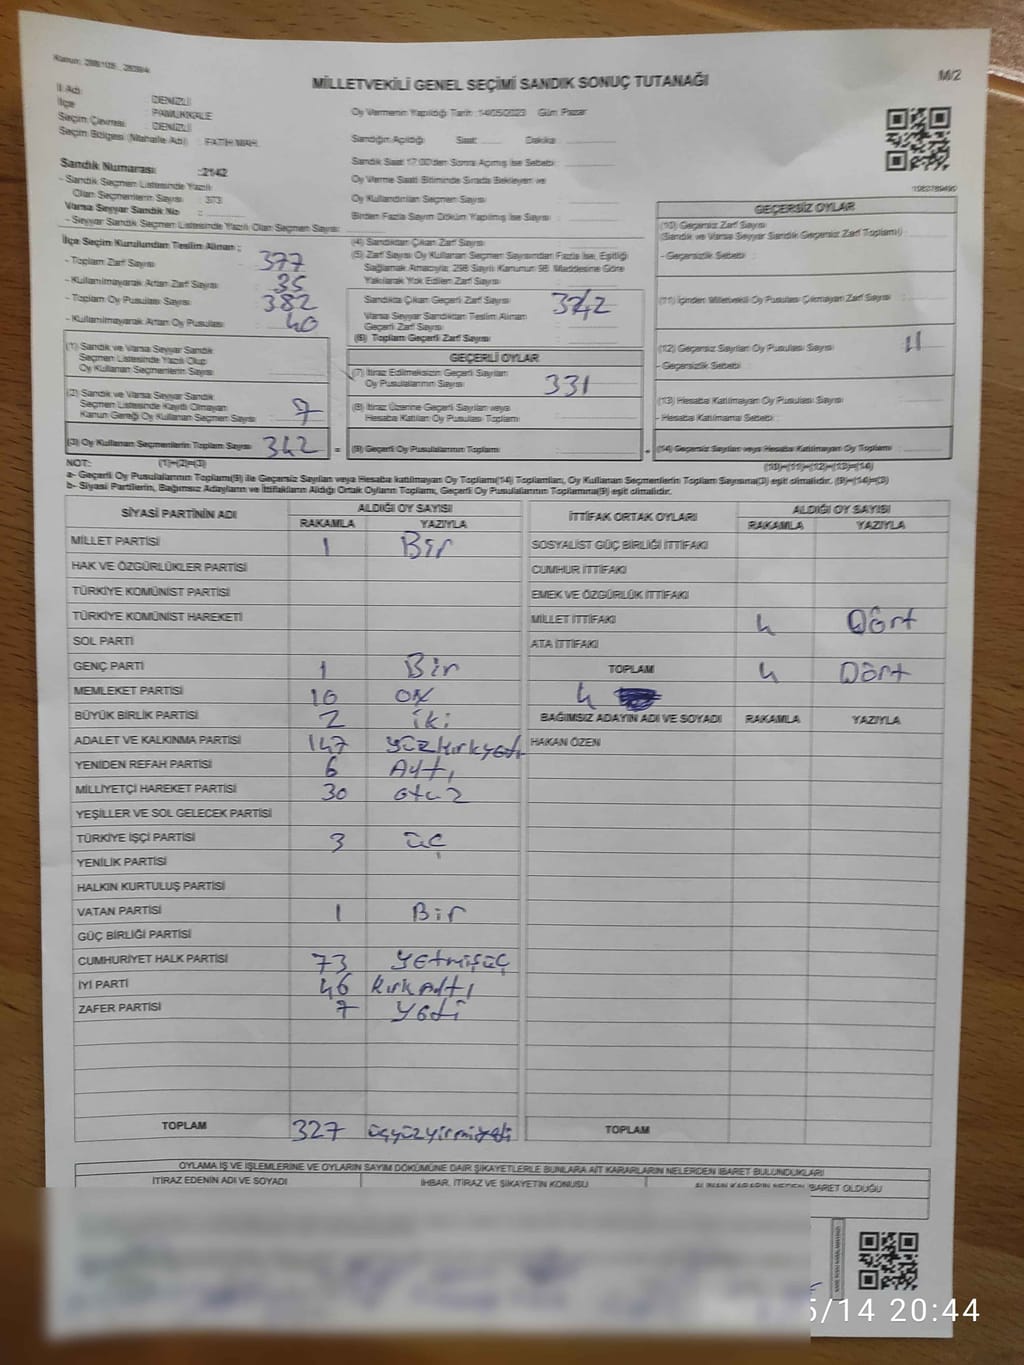 MİLLETVEKİLİ GENEL SEÇİMİ SANDIK SONUÇ TUTANAĞI
M/2
İl Adı : DENİZLİ
İlçe : PAMUKKALE
Seçim Çevresi : DENİZLİ
Seçim Bölgesi (Mahalle Adı) : FATİH MAH.
Oy Vermenin Yapıldığı Tarih: 14/05/2023 Gün Pazar
Sandığın Açıldığı Saat: ........ Dakika: ........
Sandık Saat 17:00'den Sonra Açılmış İse Sebebi
Oy Verme Saati Bitiminde Sırada Bekleyen ve
Oy Kullandırılan Seçmen Sayısı
Birden Fazla Sayım Döküm Yapılmış İse Sayısı
Sandık Numarası :2142
- Sandık Seçmen Listesinde Yazılı
Olan Seçmenlerin Sayısı : 373
Varsa Seyyar Sandık No
- Seyyar Sandık Seçmen Listesinde Yazılı Olan Seçmen Sayısı:
İlçe Seçim Kurulundan Teslim Alınan ;
- Toplam Zarf Sayısı 377
- Kullanılmayarak Artan Zarf Sayısı 35
- Toplam Oy Pusulası Sayısı 382
- Kullanılmayarak Artan Oy Pusulası 40
(1) Sandık ve Varsa Seyyar Sandık
Seçmen Listesinde Yazılı Olup
Oy Kullanan Seçmenlerin Sayısı
(2) Sandık ve Varsa Seyyar Sandık
Seçmen Listesinde Kaydı Olmayan
Kanun Gereği Oy Kullanan Seçmen Sayısı 7
(3) Oy Kullanan Seçmenlerin Toplam Sayısı 342
(4) Sandıktan Çıkan Zarf Sayısı
(5) Zarf Sayısı Oy Kullanan Seçmen Sayısından Fazla İse, Eşitliği
Sağlamak Amacıyla; 298 Sayılı Kanunun 98. Maddesine Göre
Yakılarak Yok Edilen Zarf Sayısı
Sandıkta Çıkan Geçerli Zarf Sayısı 342
Varsa Seyyar Sandıktan Teslim Alınan
Geçerli Zarf Sayısı
(6) Toplam Geçerli Zarf Sayısı
GEÇERLİ OYLAR
(7) İtiraz Edilmeksizin Geçerli Sayılan
Oy Pusulalarının Sayısı 331
(8) İtiraz Üzerine Geçerli Sayılan veya
Hesaba Katılan Oy Pusulaları Toplamı
= (9) Geçerli Oy Pusulalarının Toplamı
GEÇERSİZ OYLAR
(10) Geçersiz Zarf Sayısı
(Sandık ve Varsa Seyyar Sandık Geçersiz Zarf Toplamı)
- Geçersizlik Sebebi
(11) İçinden Milletvekili Oy Pusulası Çıkmayan Zarf Sayısı
(12) Geçersiz Sayılan Oy Pusulası Sayısı 11
- Geçersizlik Sebebi
(13) Hesaba Katılmayan Oy Pusulası Sayısı
- Hesaba Katılmama Sebebi
+ (14) Geçersiz Sayılan veya Hesaba Katılmayan Oy Toplamı
NOT: (1)+(2)=(3)
(10)+(11)+(12)+(13)=(14)
a- Geçerli Oy Pusulalarının Toplamı(9) ile Geçersiz Sayılan veya Hesaba katılmayan Oy Toplamı(14) Toplamları, Oy Kullanan Seçmenlerin Toplam Sayısına(3) eşit olmalıdır. (9)+(14)=(3)
b- Siyasi Partilerin, Bağımsız Adayların ve İttifakların Aldığı Ortak Oyların Toplamı, Geçerli Oy Pusulalarının Toplamına(9) eşit olmalıdır.
SİYASİ PARTİNİN ADI
ALDIĞI OY SAYISI
RAKAMLA YAZIYLA
MİLLET PARTİSİ 1 Bir
HAK VE ÖZGÜRLÜKLER PARTİSİ
TÜRKİYE KOMÜNİST PARTİSİ
TÜRKİYE KOMÜNİST HAREKETİ
SOL PARTİ
GENÇ PARTİ 1 Bir
MEMLEKET PARTİSİ 10 ON
BÜYÜK BİRLİK PARTİSİ 2 iki
ADALET VE KALKINMA PARTİSİ 147 yüzkırkyedi
YENİDEN REFAH PARTİSİ 6 Altı
MİLLİYETÇİ HAREKET PARTİSİ 30 otuz
YEŞİLLER VE SOL GELECEK PARTİSİ
TÜRKİYE İŞÇİ PARTİSİ 3 üç
YENİLİK PARTİSİ
HALKIN KURTULUŞ PARTİSİ
VATAN PARTİSİ 1 Bir
GÜÇ BİRLİĞİ PARTİSİ
CUMHURİYET HALK PARTİSİ 73 yetmişüç
İYİ PARTİ 46 kırkAltı
ZAFER PARTİSİ 7 yedi
TOPLAM 327 üçyüzyirmiyedi
İTTİFAK ORTAK OYLARI
ALDIĞI OY SAYISI
RAKAMLA YAZIYLA
SOSYALİST GÜÇ BİRLİĞİ İTTİFAKI
CUMHUR İTTİFAKI
EMEK VE ÖZGÜRLÜK İTTİFAKI
MİLLET İTTİFAKI 4 Dört
ATA İTTİFAKI
TOPLAM 4 Dört
4
BAĞIMSIZ ADAYIN ADI VE SOYADI RAKAMLA YAZIYLA
HAKAN ÖZEN
TOPLAM
OYLAMA İŞ VE İŞLEMLERİNE VE OYLARIN SAYIM DÖKÜMÜNE DAİR ŞİKAYETLERLE BUNLARA AİT KARARLARIN NELERDEN İBARET BULUNDUKLARI
İTİRAZ EDENİN ADI VE SOYADI
İHBAR, İTİRAZ VE ŞİKAYETİN KONUSU
ALINAN KARARIN NEDEN İBARET OLDUĞU
5/14 20:44